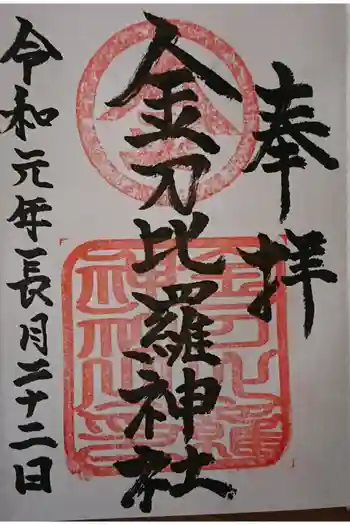 奉拝
金刀比羅神社
令和元年長月二十二日